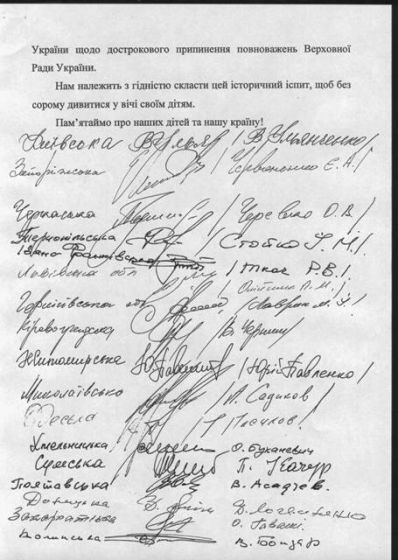 України щодо дострокового припинення повноважень Верховної
Ради України.
Нам належить з гідністю скласти цей історичний іспит, щоб без
сорому дивитися у вічі своїм дітям.
Пам'ятаймо про наших дітей та нашу країну!
Київська / В. Ульянченко /
Запорізька / Червоненко Є. А. /
Черкаська / Черевко О. В. /
Тернопільська / Стойко І. М. /
Івано Франківська
Львівська обл / Р. В. /
Чернігівська обл
Кіровоградська /
Житомирська / Юрій Павленко /
Миколаївсько / А. Садиков /
Одеська /
Хмельницька / О. Буханевич
Сумська П. Качур
Полтавська В. Асадчев
Донецька В. Логвиненко
Закарпатська О.
Волинська В. Бондар